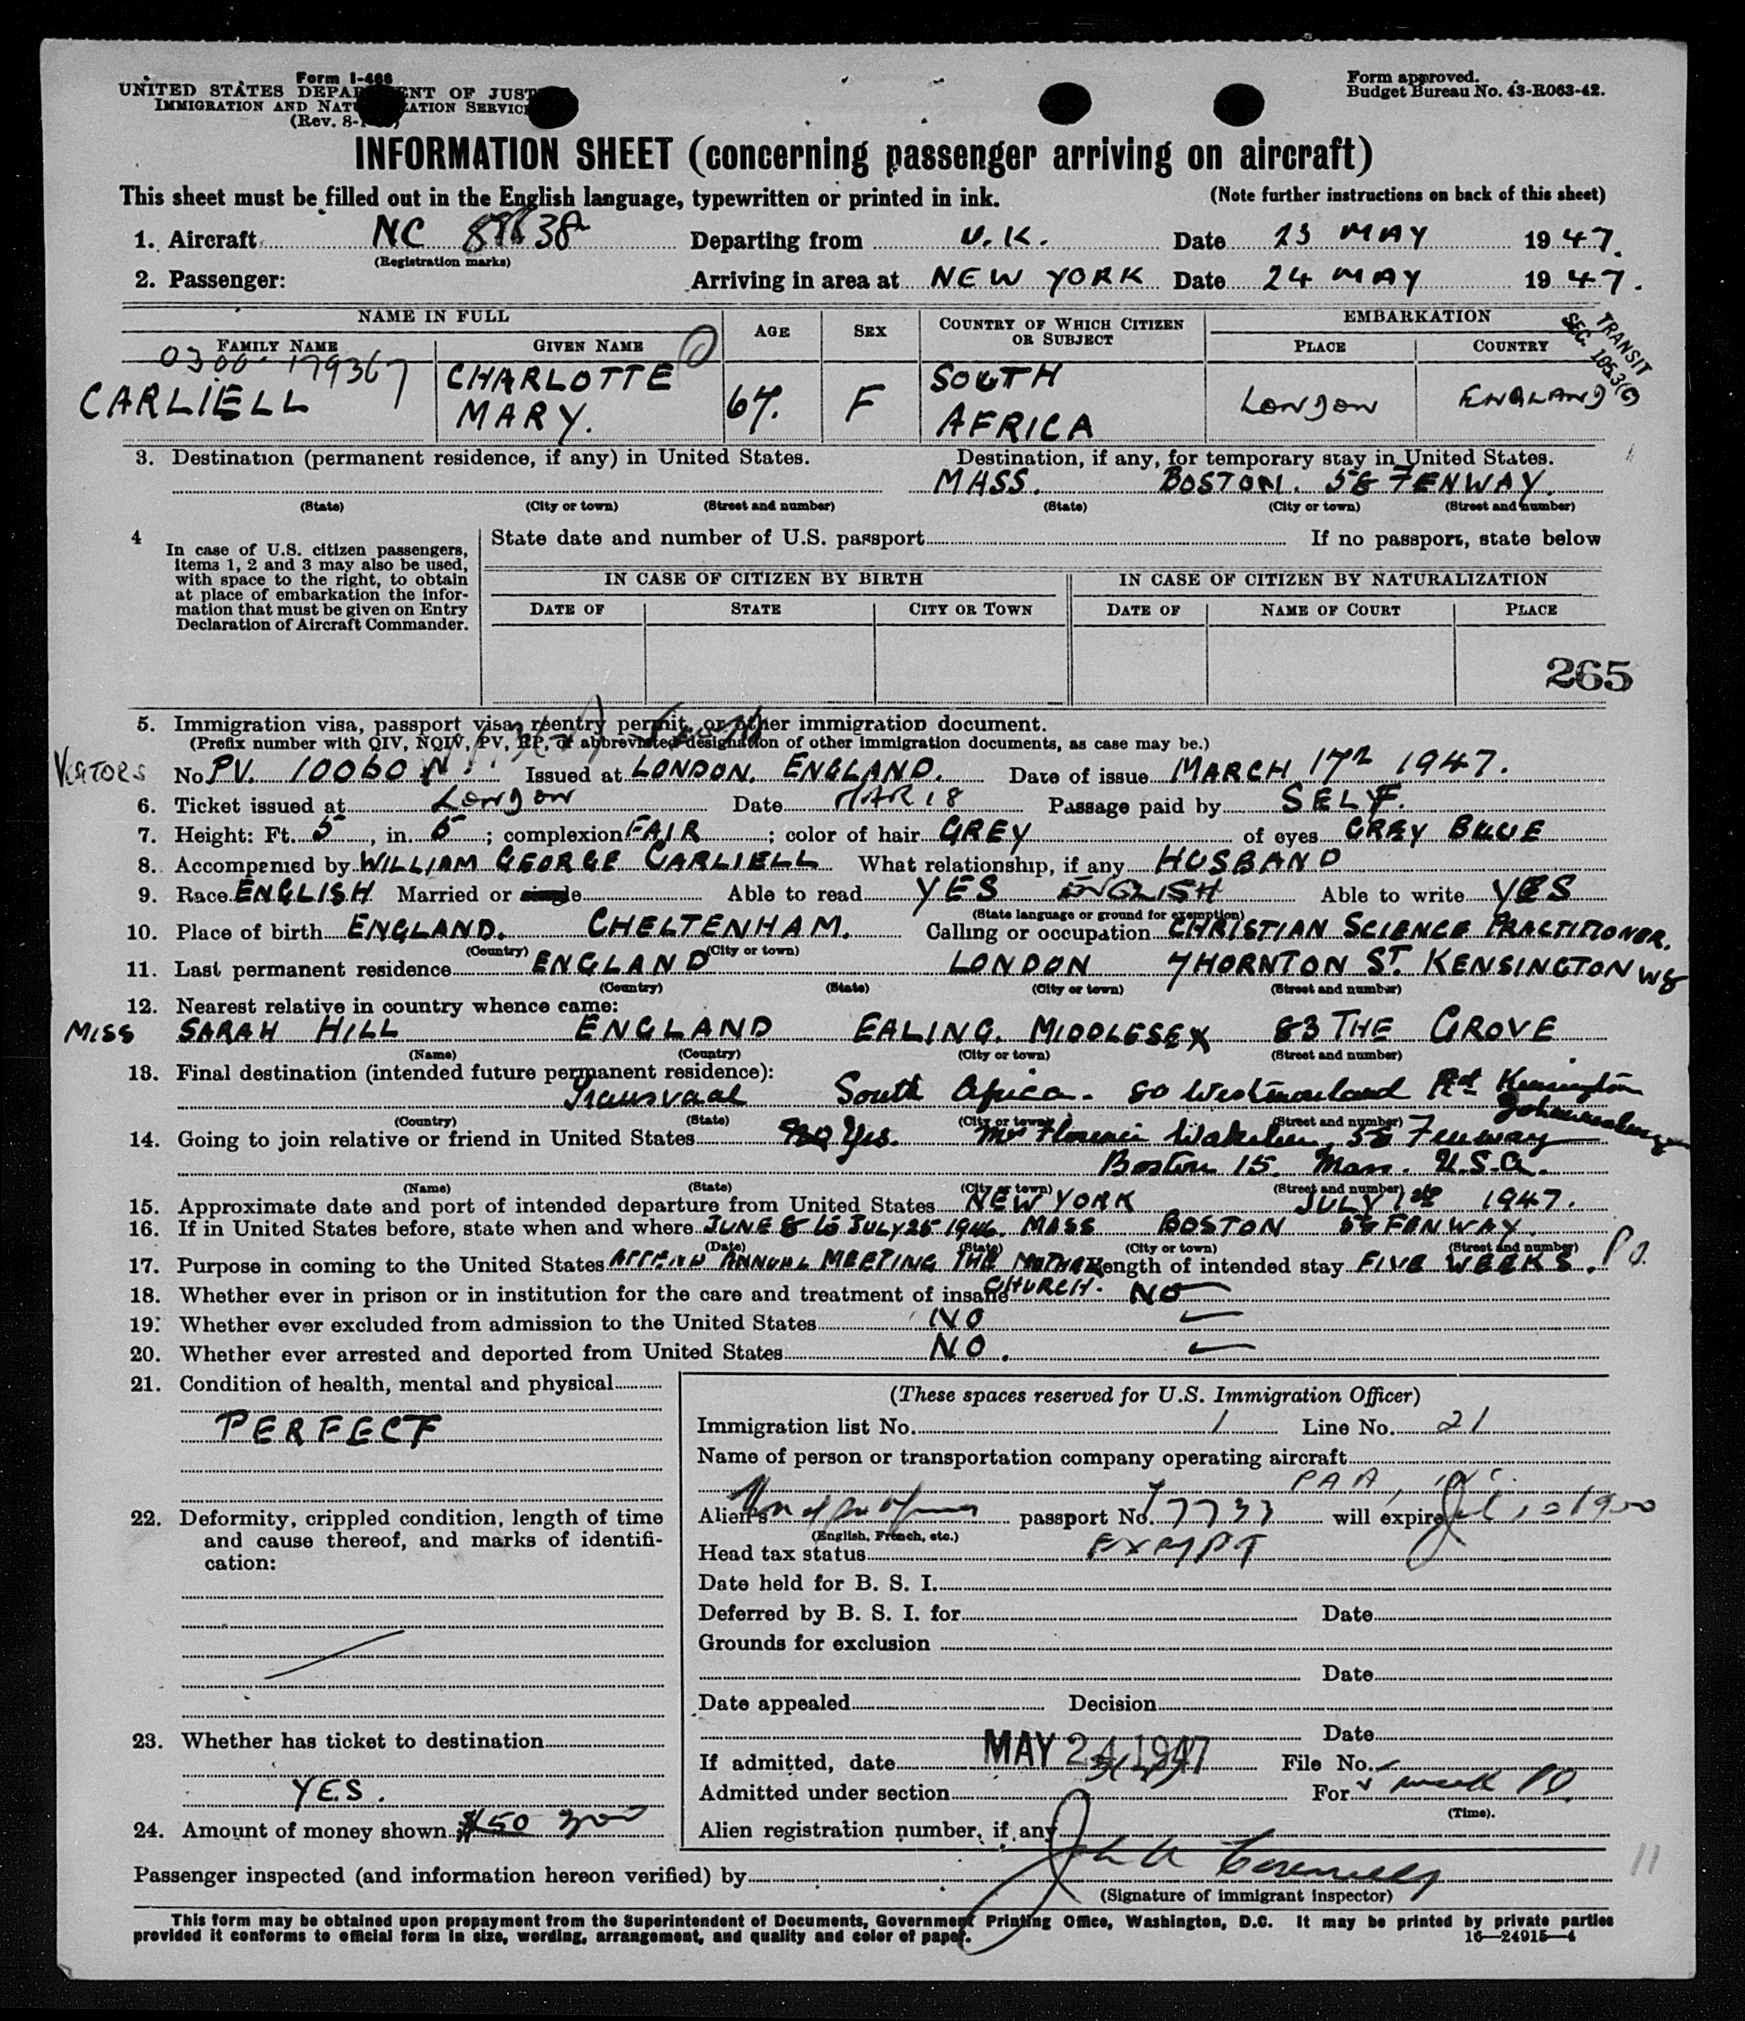 Form I-466
UNITED STATES DEPARTMENT OF JUST
IMMIGRATION AND NATURALIZATION SERVICE
(Rev. 8-
Form approved.
Budget Bureau No. 43-R063-42.
INFORMATION SHEET (concerning passenger arriving on aircraft)
This sheet must be filled out in the English language, typewritten or printed in ink. (Note further instructions on back of this sheet)
1. Aircraft NC Departing from U.K. Date 23 MAY 1947.
(Registration marks)
2. Passenger: Arriving in area at NEW YORK Date 24 MAY 1947.
NAME IN FULL AGE SEX COUNTRY OF WHICH CITIZEN OR SUBJECT EMBARKATION
FAMILY NAME GIVEN NAME PLACE COUNTRY
TRANSIT
SEC. 105.3(c)
0300-179367
CARLIELL CHARLOTTE MARY. 67. F SOUTH AFRICA LONDON ENGLAND
3. Destination (permanent residence, if any) in United States. Destination, if any, for temporary stay in United States.
MASS. BOSTON. 58 FENWAY.
(State) (City or town) (Street and number) (State) (City or town) (Street and number)
4 In case of U.S. citizen passengers, items 1, 2 and 3 may also be used, with space to the right, to obtain at place of embarkation the information that must be given on Entry Declaration of Aircraft Commander.
State date and number of U.S. passport If no passport, state below
IN CASE OF CITIZEN BY BIRTH IN CASE OF CITIZEN BY NATURALIZATION
DATE OF STATE CITY OR TOWN DATE OF NAME OF COURT PLACE
265
5. Immigration visa, passport visa, reentry permit, or other immigration document.
(Prefix number with QIV, NQIV, PV, RP, or abbreviated designation of other immigration documents, as case may be.)
VISITORS No. PV. 10060 Issued at LONDON. ENGLAND. Date of issue MARCH 17th 1947.
6. Ticket issued at London Date MAR 18 Passage paid by SELF.
7. Height: Ft. 5, in. 6; complexion FAIR; color of hair GREY of eyes GREY BLUE
8. Accompanied by WILLIAM GEORGE CARLIELL What relationship, if any HUSBAND
9. Race ENGLISH Married or single Able to read YES ENGLISH Able to write YES
(State language or ground for exemption)
10. Place of birth ENGLAND. CHELTENHAM. Calling or occupation CHRISTIAN SCIENCE PRACTITIONER.
(Country) (City or town)
11. Last permanent residence ENGLAND LONDON 7 HORNTON ST. KENSINGTON W8
(Country) (State) (City or town) (Street and number)
12. Nearest relative in country whence came:
MISS SARAH HILL ENGLAND EALING. MIDDLESEX 83 THE GROVE
(Name) (Country) (City or town) (Street and number)
13. Final destination (intended future permanent residence):
Transvaal South Africa. 80 Westmorland Rd Kensington Johannesburg
(Country) (State) (City or town) (Street and number)
14. Going to join relative or friend in United States Yes. Florence 58 Fenway
Boston 15. Mass. U.S.A.
(Name) (State) (City or town) (Street and number)
15. Approximate date and port of intended departure from United States NEW YORK JULY 1st 1947.
16. If in United States before, state when and where JUNE 8 to JULY 25 1946. MASS BOSTON 58 FENWAY
(Date) (State) (City or town) (Street and number)
17. Purpose in coming to the United States ATTEND ANNUAL MEETING THE MOTHER CHURCH. Length of intended stay FIVE WEEKS.
18. Whether ever in prison or in institution for the care and treatment of insane NO
19. Whether ever excluded from admission to the United States NO
20. Whether ever arrested and deported from United States NO.
21. Condition of health, mental and physical
PERFECT
22. Deformity, crippled condition, length of time and cause thereof, and marks of identification:
23. Whether has ticket to destination
YES.
24. Amount of money shown $50
(These spaces reserved for U.S. Immigration Officer)
Immigration list No. 1 Line No. 21
Name of person or transportation company operating aircraft
PAA
Alien's passport No. 7733 will expire
(English, French, etc.)
Head tax status EXEMPT
Date held for B. S. I.
Deferred by B. S. I. for Date
Grounds for exclusion
Date
Date appealed Decision
Date
If admitted, date MAY 24 1947 File No.
Admitted under section For
(Time).
Alien registration number, if any
Passenger inspected (and information hereon verified) by
(Signature of immigrant inspector)
11
This form may be obtained upon prepayment from the Superintendent of Documents, Government Printing Office, Washington, D.C. It may be printed by private parties
provided it conforms to official form in size, wording, arrangement, and quality and color of paper. 16—24915—4